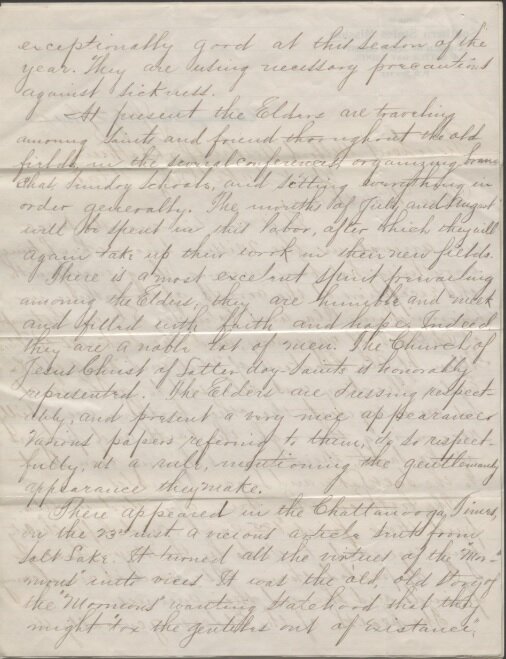 exceptionally good at this season of the
year. They are using necessary precautions
against sickness.
At present the Elders are traveling
among Saints and friend thoroughout the old
fields in the several conferences, organizing bran-
ches, Sunday Schools, and setting everything in
order generally. The months of July and August
will be spent in this labor, after which they will
again take up their work in their new fields.
There is a most excelent spirit prevailing
among the Elders, they are humble and meek
and filled with faith and hope. Indeed
they are a noble lot of men. The Church of
Jesus Christ of Latter day-Saints is honorably
represented. The Elders are dressing respect-
ably, and present a very nice appearance.
Various papers refering to them, do so respect-
fully, as a rule, mentioning the gentlemanly
appearance they make.
There appeared in the Chattanooga Times,
on the 23rd inst a vicious article sent from
Salt Lake. It turned all the virtues of the "Mor-
mons" into vices. It was the old, old story of
the "Mormons" wanting statehood that they
might "tax the gentiles out of existance",